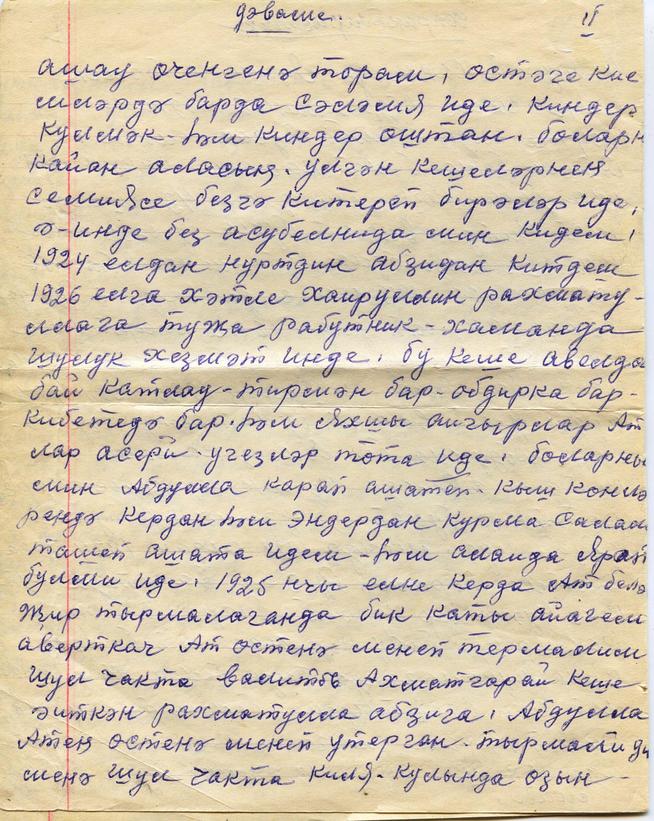 дәвамы.. II
ашау өченгенә торам, өстәге кие
мнәрдә барда сәләмия иде. Киндер
кулмәк- һәм киндер оштан. боларн
кайан аласың. үлгән кешеләрнең
семиясе безгә китереп бирәләр иде,
ә-инде без асубелнида мин кидем,
1924 елдан нуртдин абзидан китдем
1926 елга хәтле хаируллин рахмату-
ллага тужа рабутник - хаманда
шулук хезмәт инде. бу кеше авелда
бай катлау-тирмән бар-обдирка бар-
кибетедә бар. һәм яхшы айгырлар Ат
лар асери. үгезләр тота иде, боларны
мин Абдулла карап ашатеп. Кыш көнлә
рендә кердан һәм эндердан курма салам
ташеп ашата идем -һәм аланда ярап
булми иде, 1925 нчы елне керда Ат белә
жир тырмалаганда бик каты айагем
аверткач Ат өстенә менеп термалим
шул чакта валитов Ахматгарай кеше
әиткән рахматулла абзига, Абдулла
Атең өстенә менеп утерган. тырмали ди
менә шул чакта киля. кулында озын -